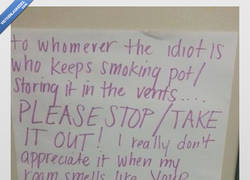 to whomever the idiot is
who keeps smoking pot/
storing it in the vents....
PLEASE STOP/TAKE
IT OUT! I really don't
appreciate it when my
room smells like your